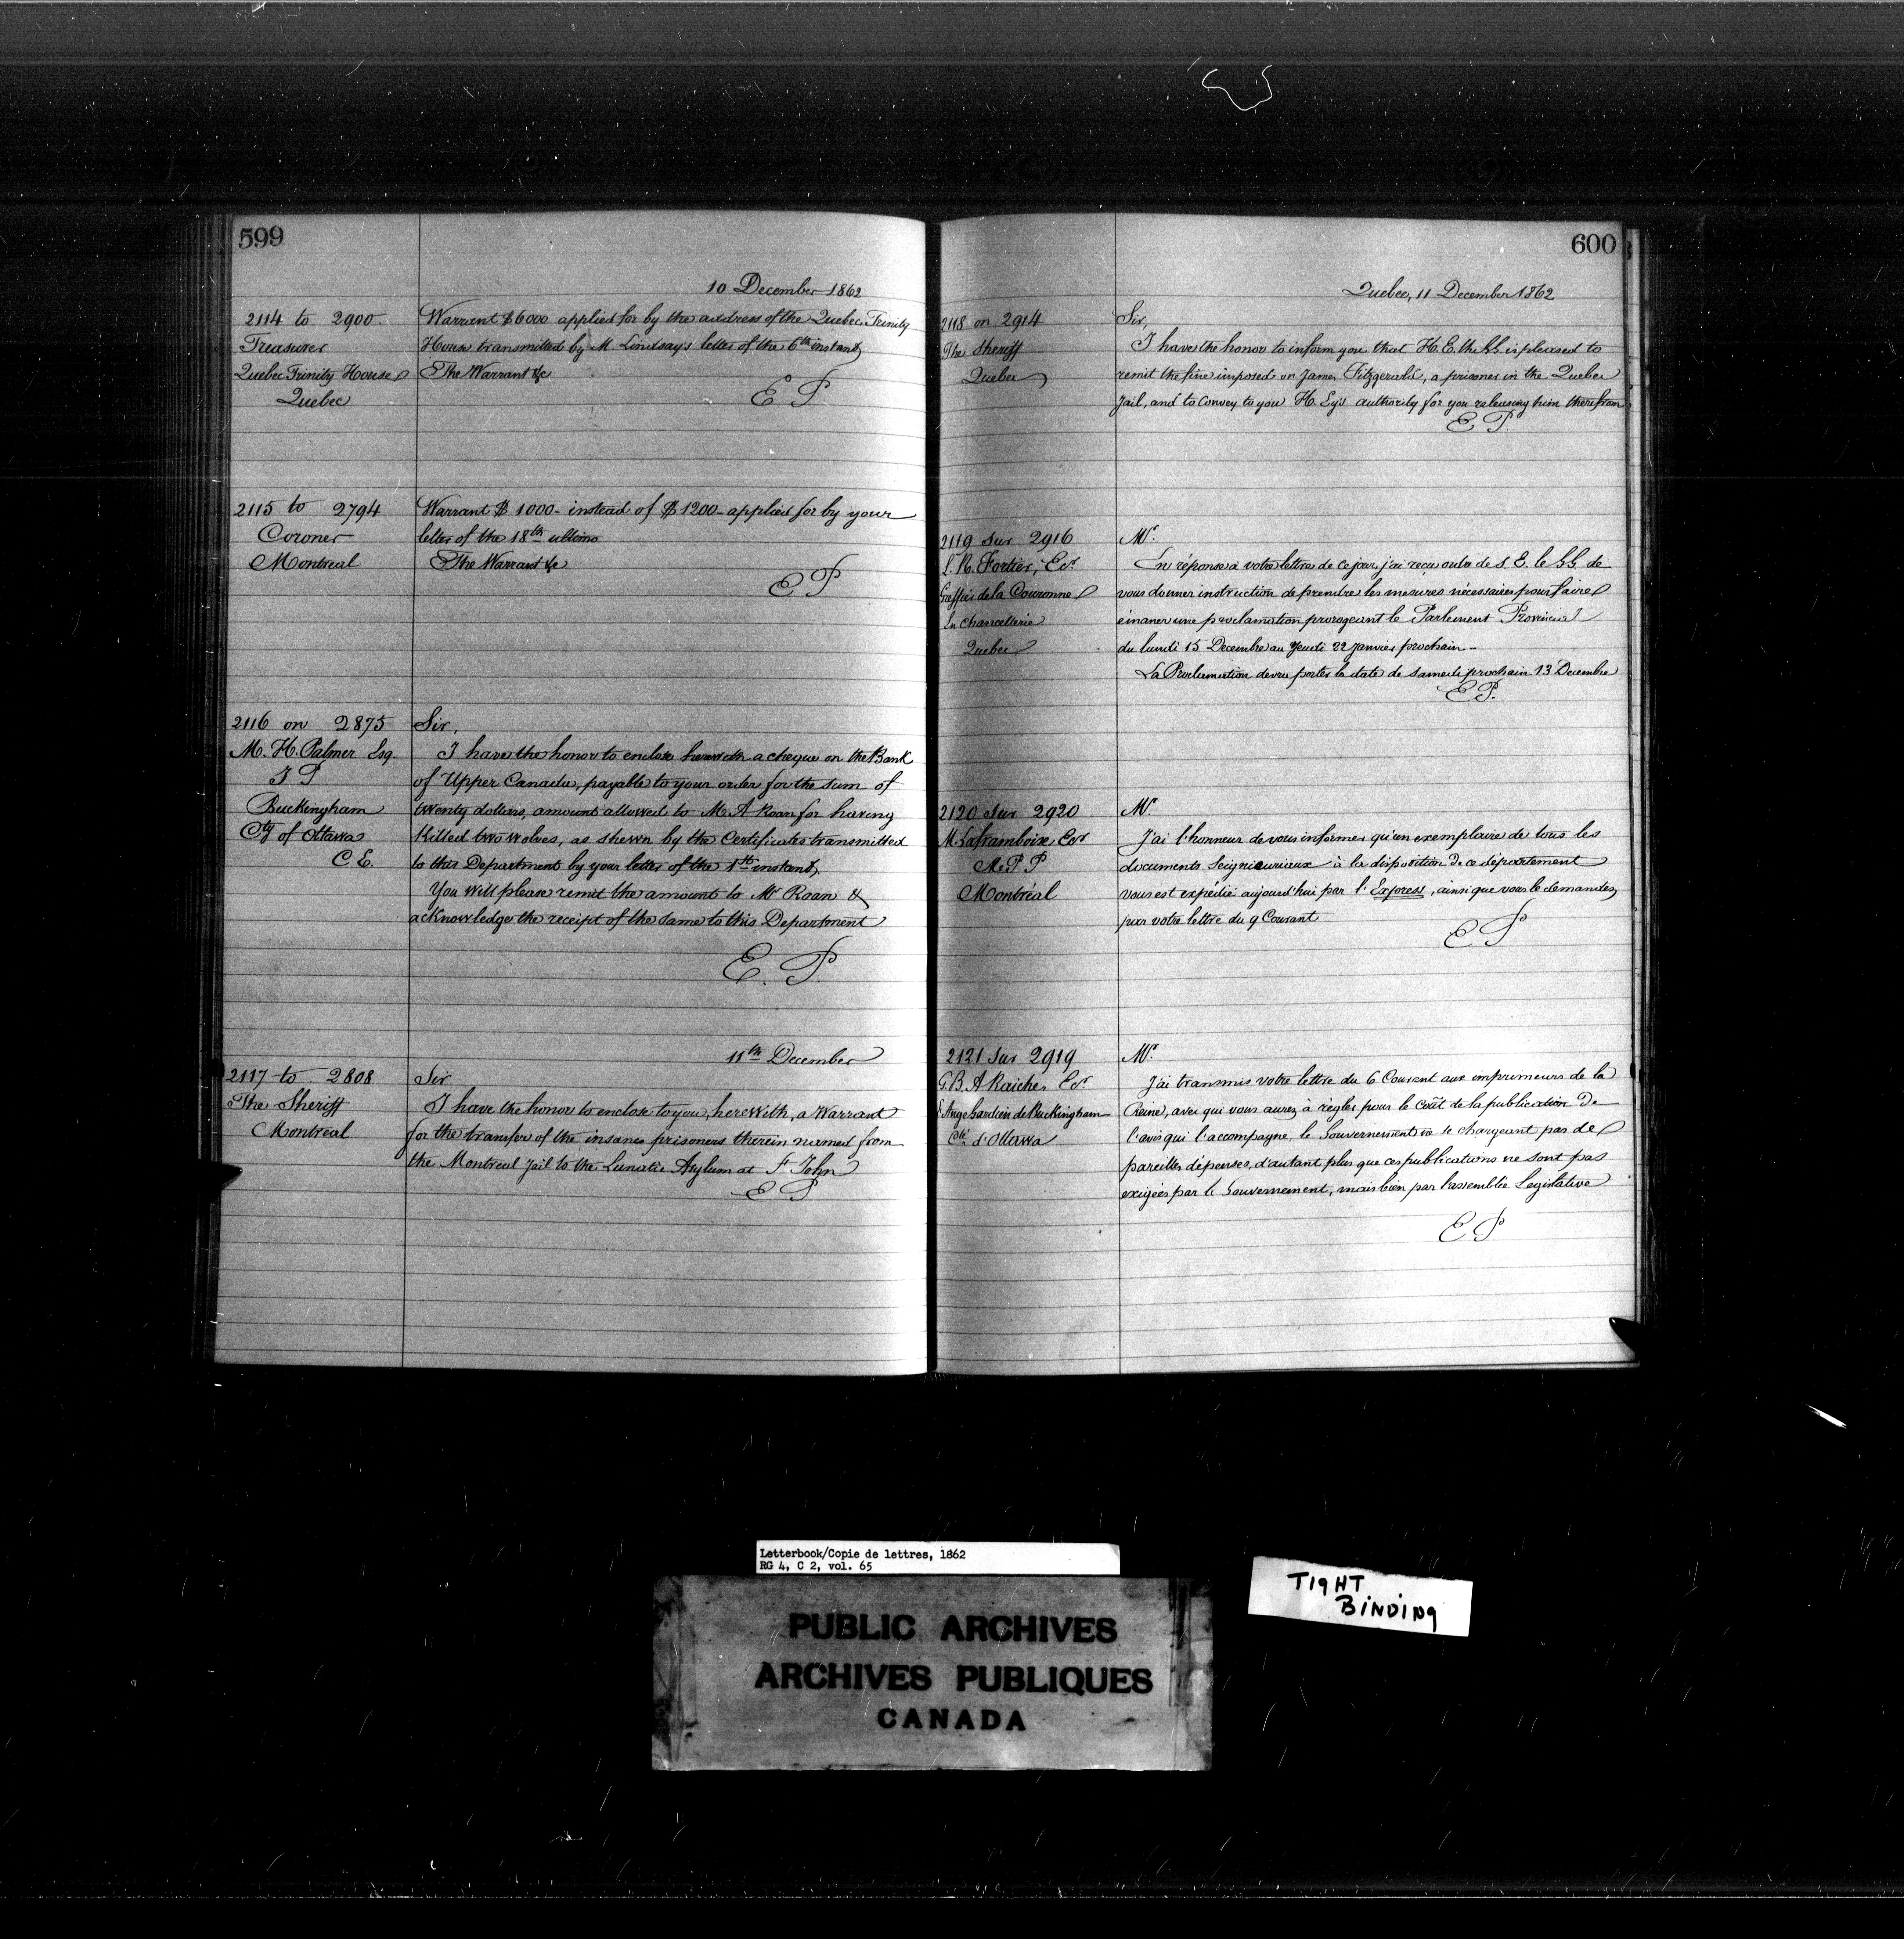 599
10 December 1862
2114 to 2900
Treasurer
Quebec Trinity House
Quebec
Warrant $6000 applied for by the address of the Quebec Trinity
House transmitted by M. Lindsay's letter of the 6th instant
The Warrant &c
E P
2115 to 2794
Coroner
Montreal
Warrant $1000 - instead of $1200 - applied for by your
letter of the 18th ultimo
The Warrant &c
E P
2116 on 2875
M. H. Palmer Esq.
J P
Buckingham
Cty of Ottawa
C E.
Sir,
I have the honor to enclose herewith a cheque on the Bank
of Upper Canada, payable to your order for the sum of
twenty dollars, amount allowed to Mr A Roan for having
killed two wolves, as shewn by the Certificates transmitted
to this Department by your letter of the instant.
You will please remit the amount to Mr Roan &
acknowledge the receipt of the same to this Department
E. P.
11th December
2117 to 2808
The Sheriff
Montreal
Sir
I have the honor to enclose to you, herewith, a Warrant
for the transfer of the insane prisoners therein named from
the Montreal Jail to the Lunatic Asylum at St John
E P
600
Quebec, 11 December 1862
2118 on 2914
The Sheriff
Quebec
Sir,
I have the honor to inform you that H. E. the G.G. is pleased to
remit the fine imposed on James Fitzgerald, a prisoner in the Quebec
Jail, and to convey to you H. Ey's authority for you releasing him therefrom
E P.
2119 sur 2916
L. R. Fortier, Ecr
Greffier de la Couronne
En Chancellerie
Quebec
Mr.
En réponse à votre lettre de ce jour j'ai reçu ordre de S. E. le G.G. de
vous donner instruction de prendre les mesures nécessaires pour faire
émaner une proclamation prorogeant le Parlement Provincial
du lundi 15 Decembre au Jeudi 22 Janvier prochain -
La Proclamation devra porter la date de samedi prochain 13 Decembre
E P.
2120 sur 2920
M. Laframboise Ecr
M. P P
Montréal
Mr.
J'ai l'honneur de vous informer qu'un exemplaire de tous les
documents Seigneuriaux à la disposition de ce département
vous est expédié aujourd'hui par l'Express, ainsi que vous le demandez
par votre lettre du 9 Courant
E P
2121 sur 2919
G. B. A Ecr
L'Ange Gardien de Buckingham
Cté d'Ottawa
Mr.
J'ai transmis votre lettre du 6 Courant aux imprimeurs de la
Reine, avec qui vous aurez à règler pour le coût de la publication de
l'avis qui l'accompagne, le Gouvernement ne se chargeant pas de
pareilles dépenses, d'autant plus que ces publications ne sont pas
exigées par le Gouvernement, mais bien par l'assemblée Legislative
E P
Letterbook/Copie de lettres, 1862
RG 4, C 2, vol. 65
TIGHT
BINDING
PUBLIC ARCHIVES
ARCHIVES PUBLIQUES
CANADA